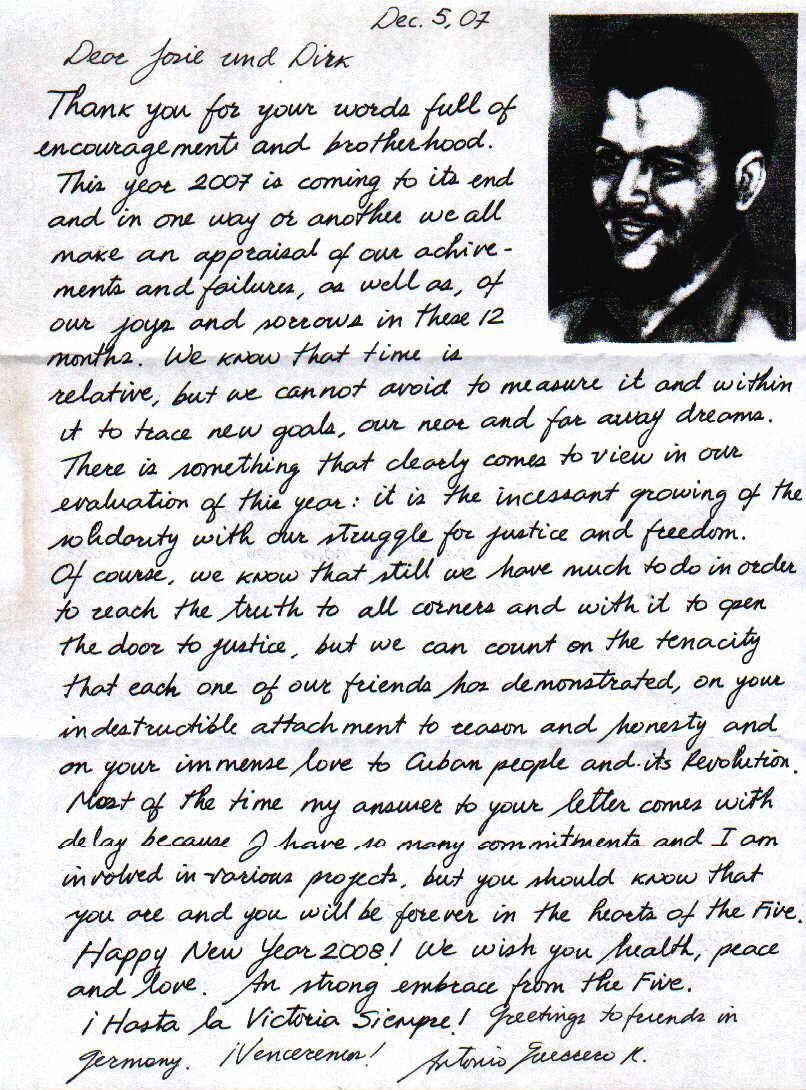 Dec. 5, 07
Dear Josie und Dirk
Thank you for your words full of
encouragements and brotherhood.
This year 2007 is coming to its end
and in one way or another we all
make an appraisal of our achive-
ments and failures, as well as, of
our joys and sorrows in these 12
months. We know that time is
relative, but we cannot avoid to measure it and within
it to trace new goals, our near and far away dreams.
There is something that clearly comes to view in our
evaluation of this year: it is the incessant growing of the
solidarity with our struggle for justice and freedom.
Of course, we know that still we have much to do in order
to reach the truth to all corners and with it to open
the door to justice, but we can count on the tenacity
that each one of our friends has demonstrated, on your
indestructible attachment to reason and honesty and
on your immense love to Cuban people and its Revolution.
Most of the time my answer to your letter comes with
delay because I have so many commitments and I am
involved in various projects, but you should know that
you are and you will be forever in the hearts of the Five.
Happy New Year 2008! We wish you health, peace
and love. An strong embrace from the Five.
¡Hasta la Victoria Siempre! Greetings to friends in
Germany. ¡Venceremos! Antonio Guerrero R.